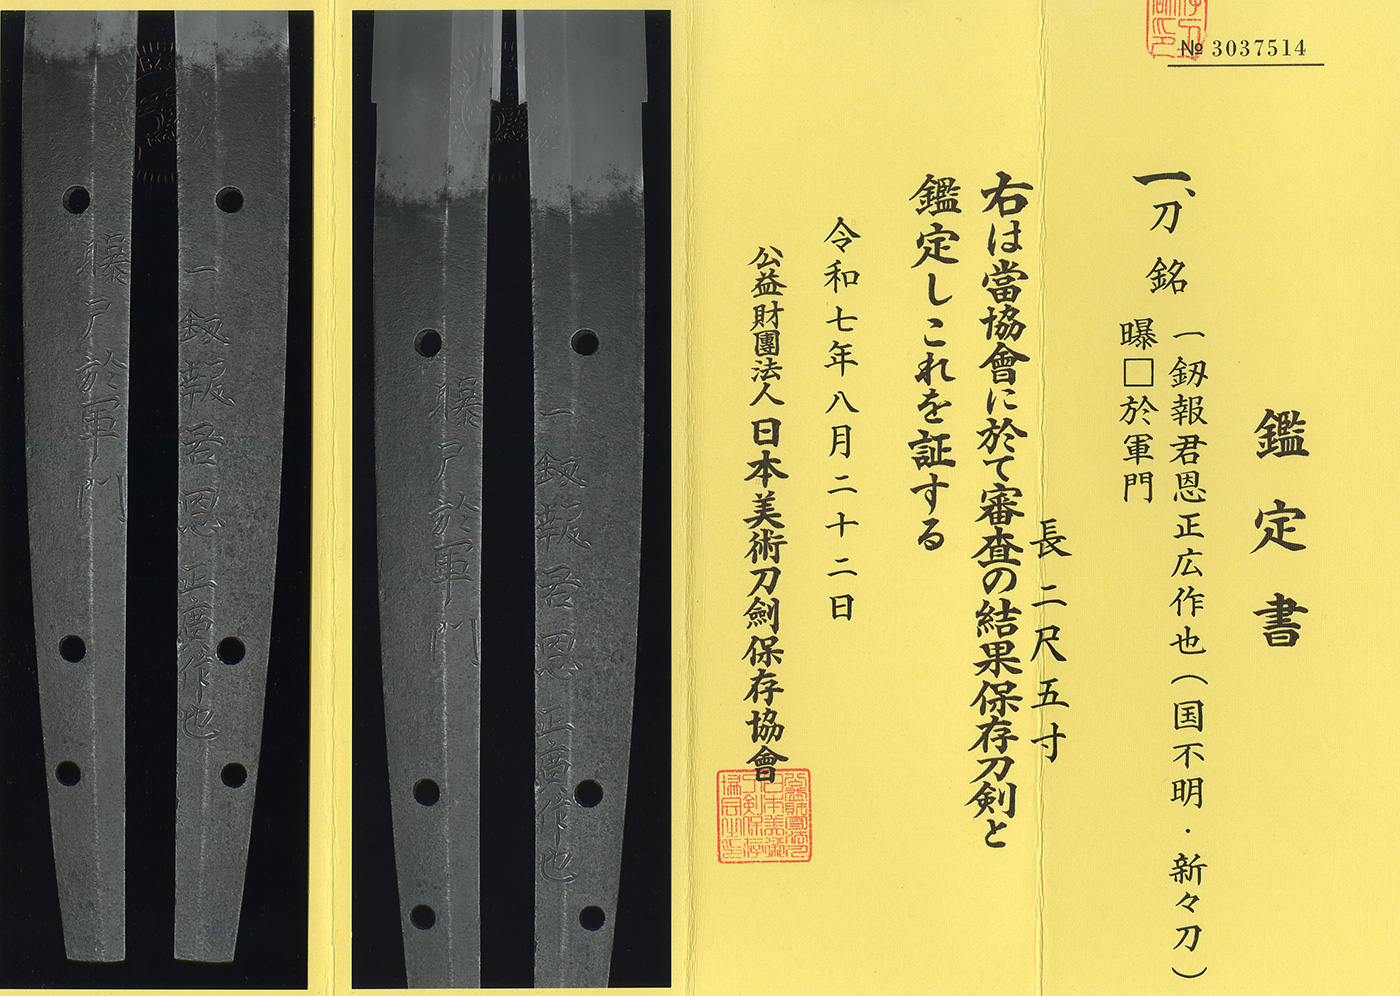 № 3037514
鑑定書
一、刀 銘 一釼報君恩正広作也(国不明・新々刀)
曝□於軍門
長 二尺五寸
右は當協會に於て審査の結果保存刀剣と
鑑定しこれを証する
令和七年八月二十二日
公益財團法人 日本美術刀劍保存協會
一釼報君恩 正廣作也
曝尸於軍門
一釼報君恩 正廣作也
曝尸於軍門